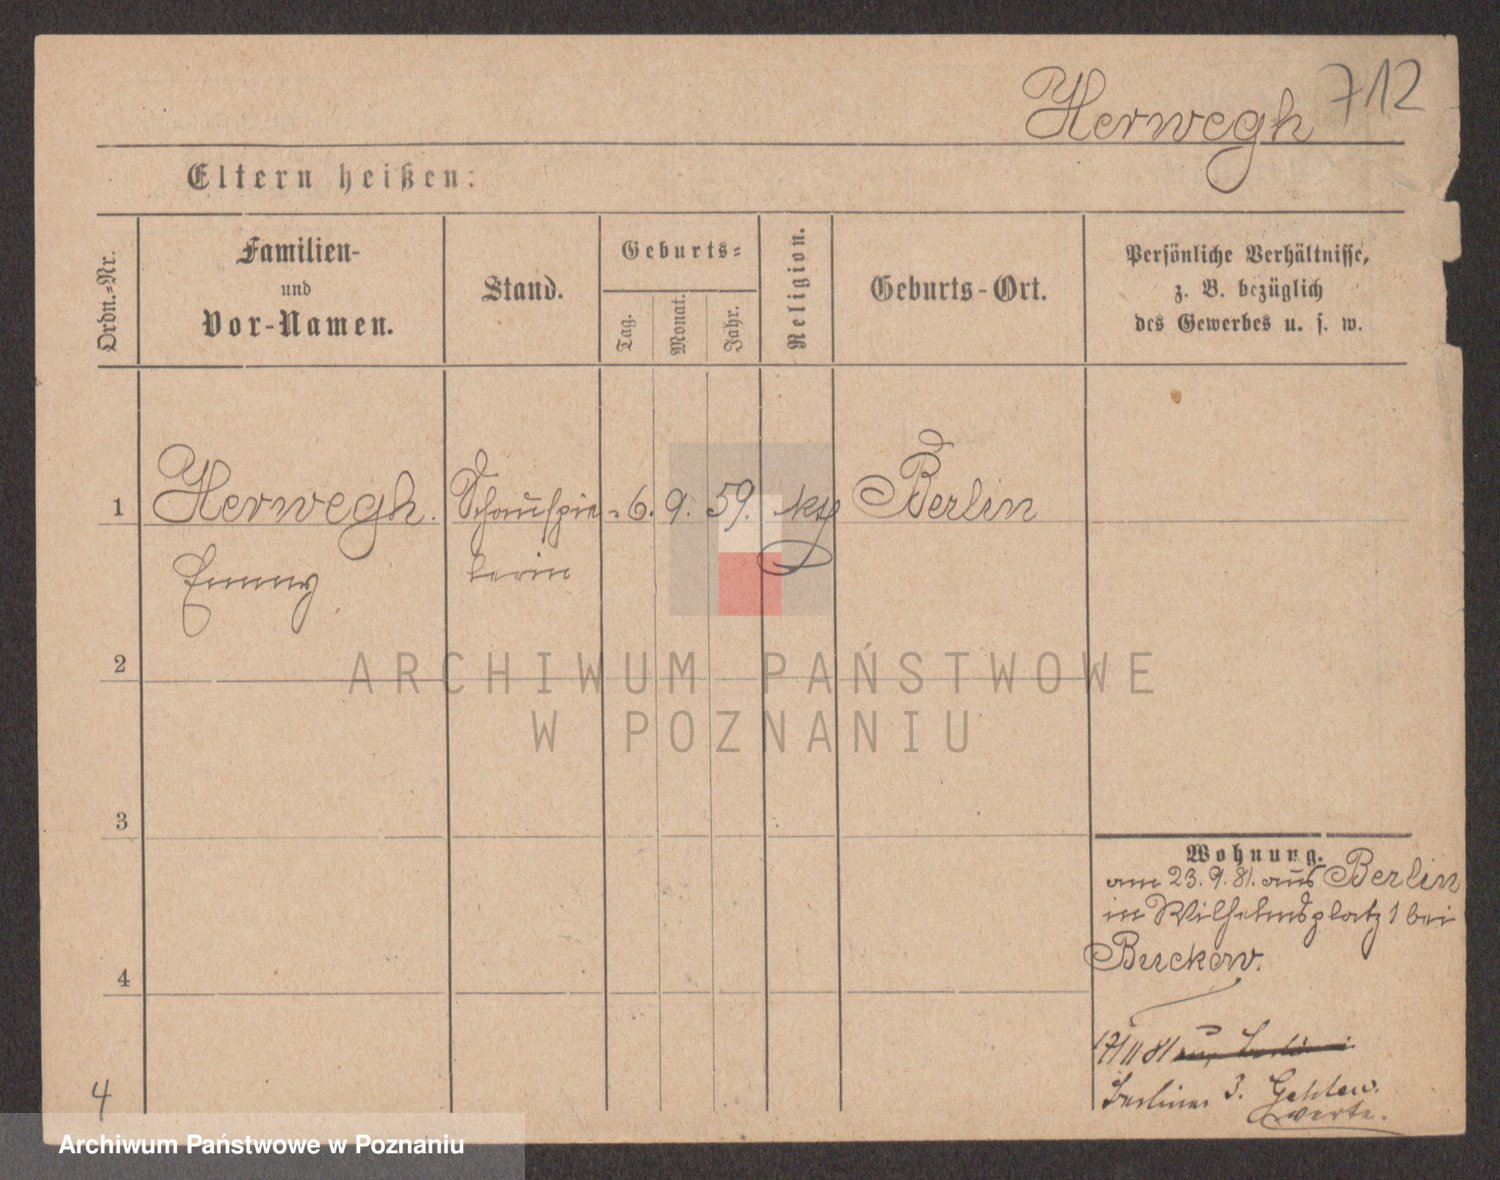 Herwegh 712
Eltern heißen:
Ordn.-Nr.
Familien-
und
Vor-Namen.
Stand.
Geburts-
Tag.
Monat.
Jahr.
Religion.
Geburts-Ort.
Persönliche Verhältnisse,
z. B. bezüglich
des Gewerbes u. s. w.
1 Herwegh. Schauspie- 6. 9. 59. Berlin
Emmy lerin
2
ARCHIWUM PAŃSTWOWE
W POZNANIU
3
Wohnung.
am 23.9.81. aus Berlin
in Wilhelmsplatz 1 bei
Buckow.
4
17/11 81
Berliner 3.
4
Archiwum Państwowe w Poznaniu